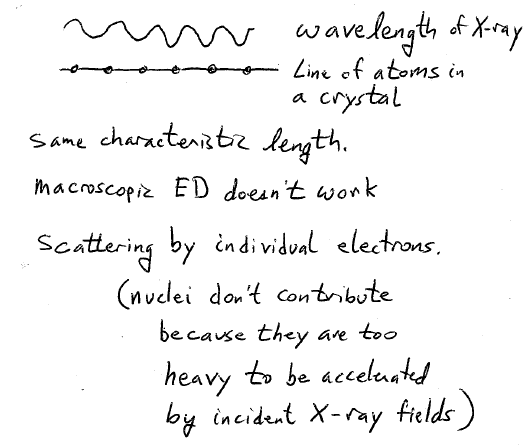 wavelength of X-ray
Line of atoms in
a crystal
same characteristic length.
macroscopic ED doesn't work
Scattering by individual electrons.
(nuclei don't contribute
because they are too
heavy to be accelerated
by incident X-ray fields)